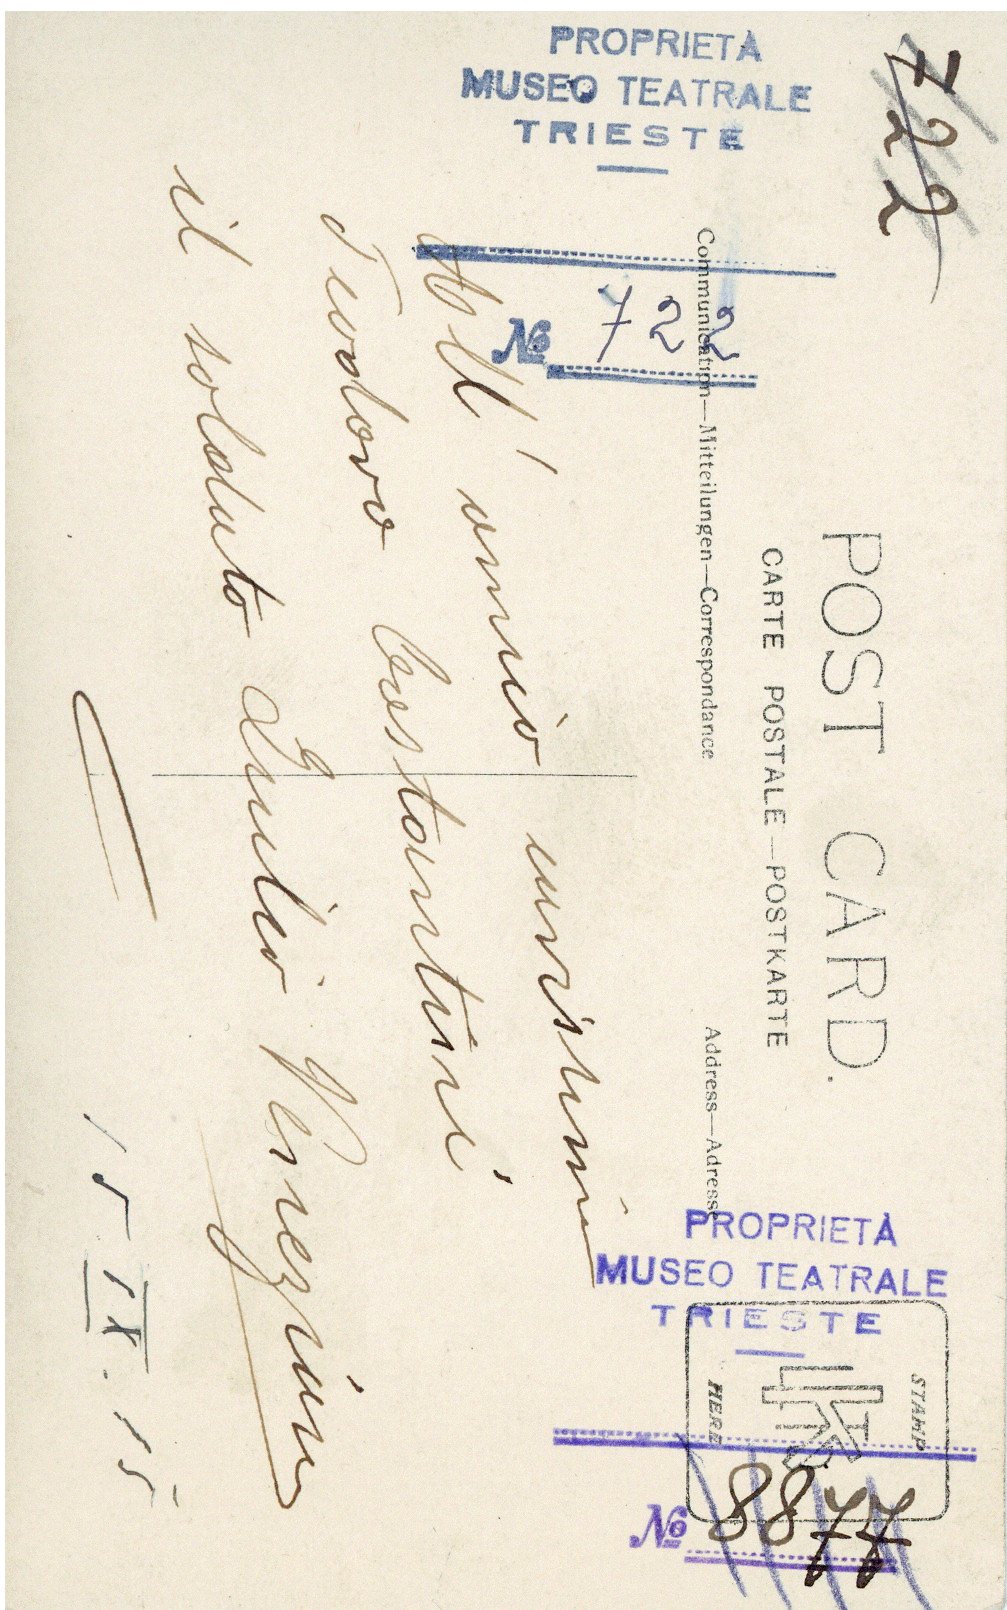 PROPRIETÀ
MUSEO TEATRALE
TRIESTE
722
№ 722
POST CARD.
CARTE POSTALE—POSTKARTE
Communication—Mitteilungen—Correspondance
Address—Adresse
All' amico
Teodoro Costantini
il soldato Giulio
15 IX. 15
PROPRIETÀ
MUSEO TEATRALE
TRIESTE
STAMP
HERE
№ 8877